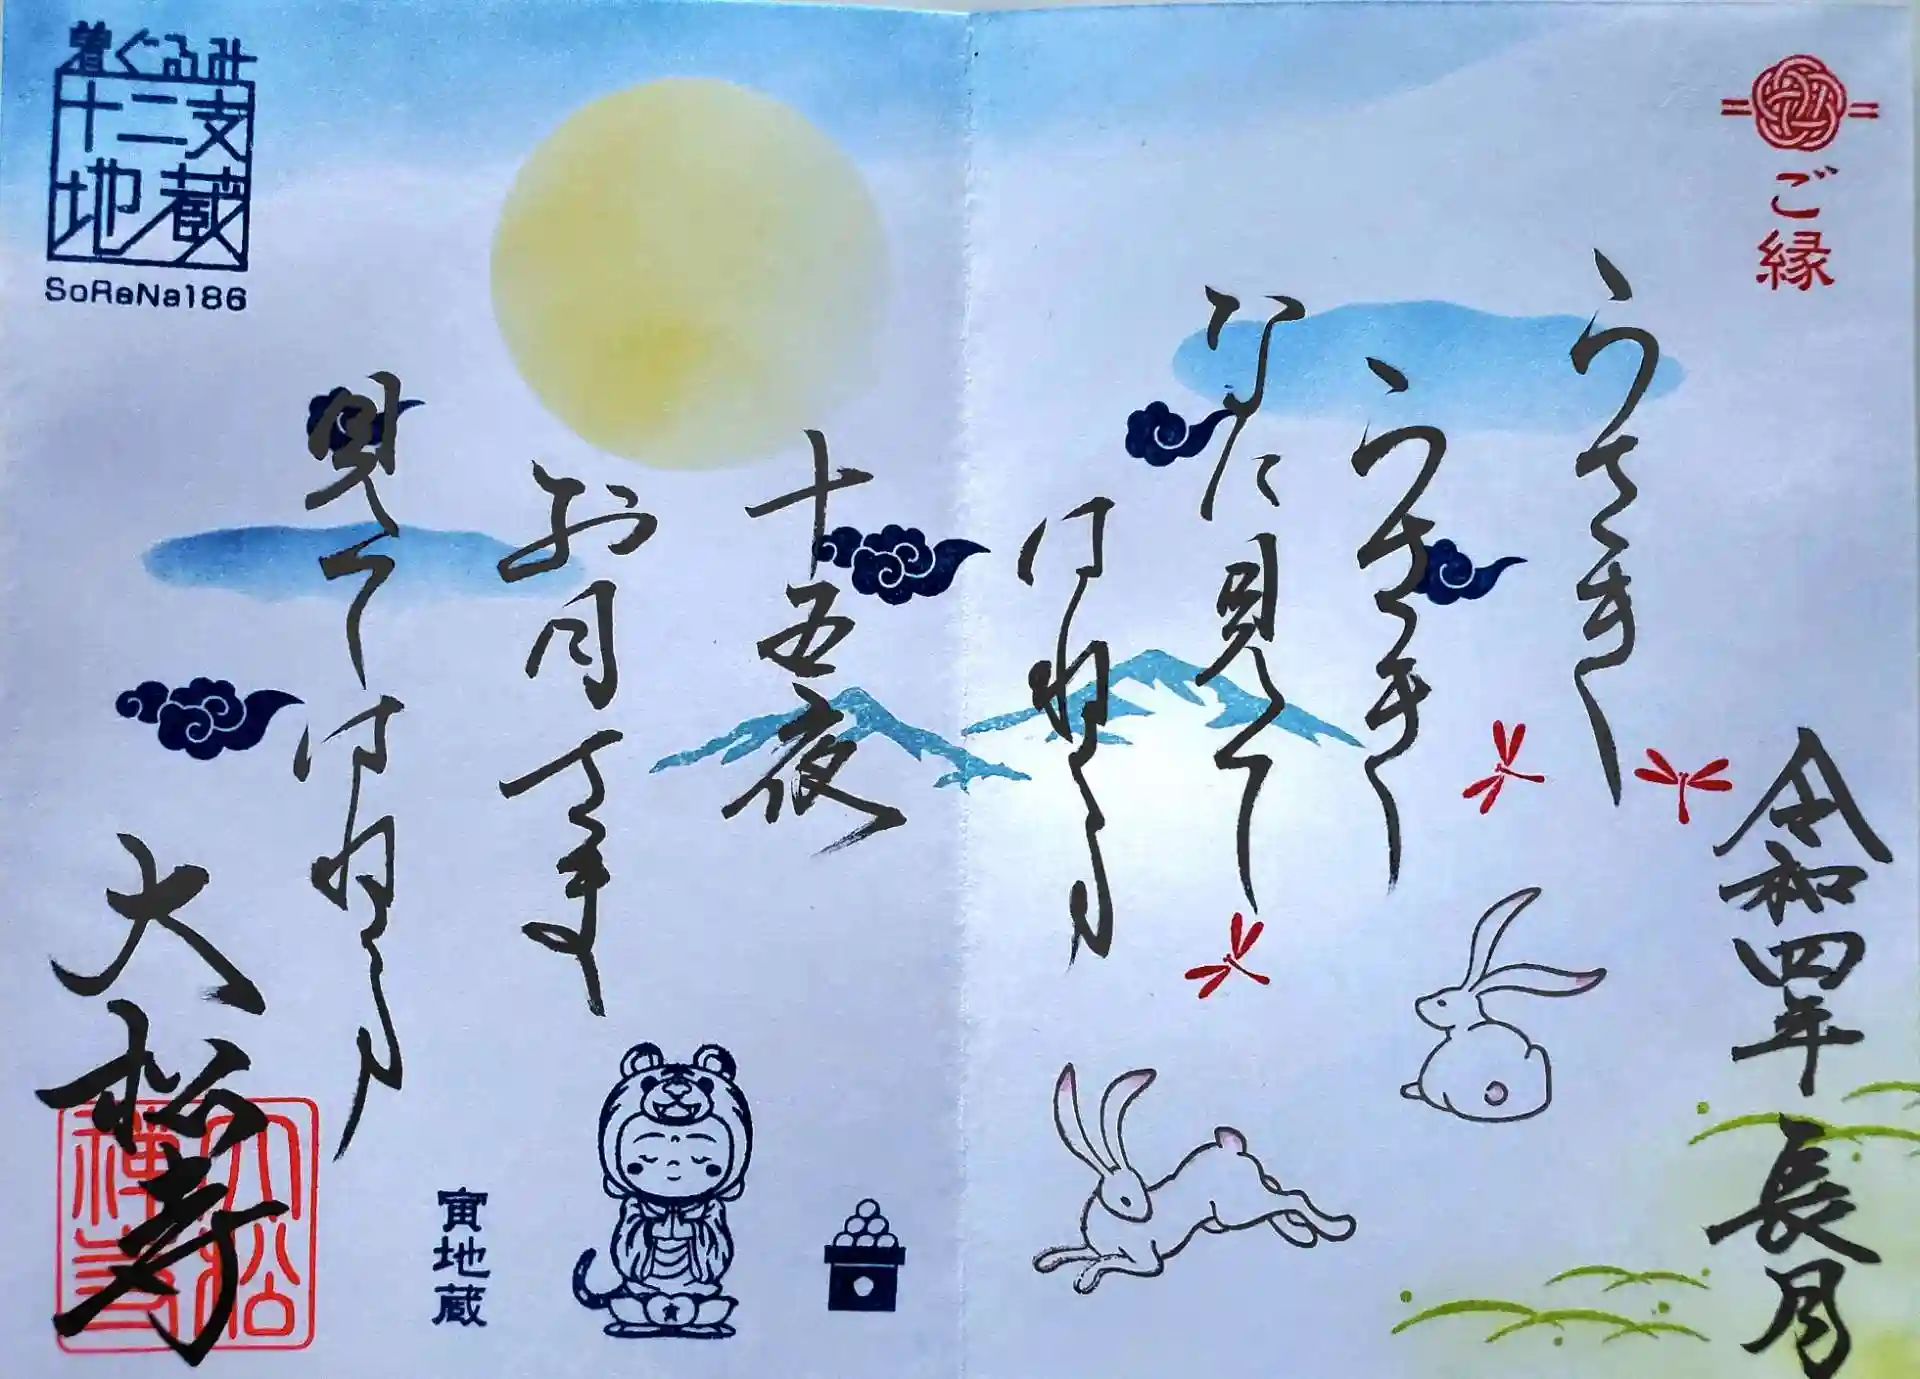 ご縁
令和四年 長月
うさぎ
うさぎ
なに見て
はねる
十五夜
お月さま
見てはねる
大松寺
大松
禅寺
寅地蔵
着ぐるみ
十二支
地蔵
SoRaNa186